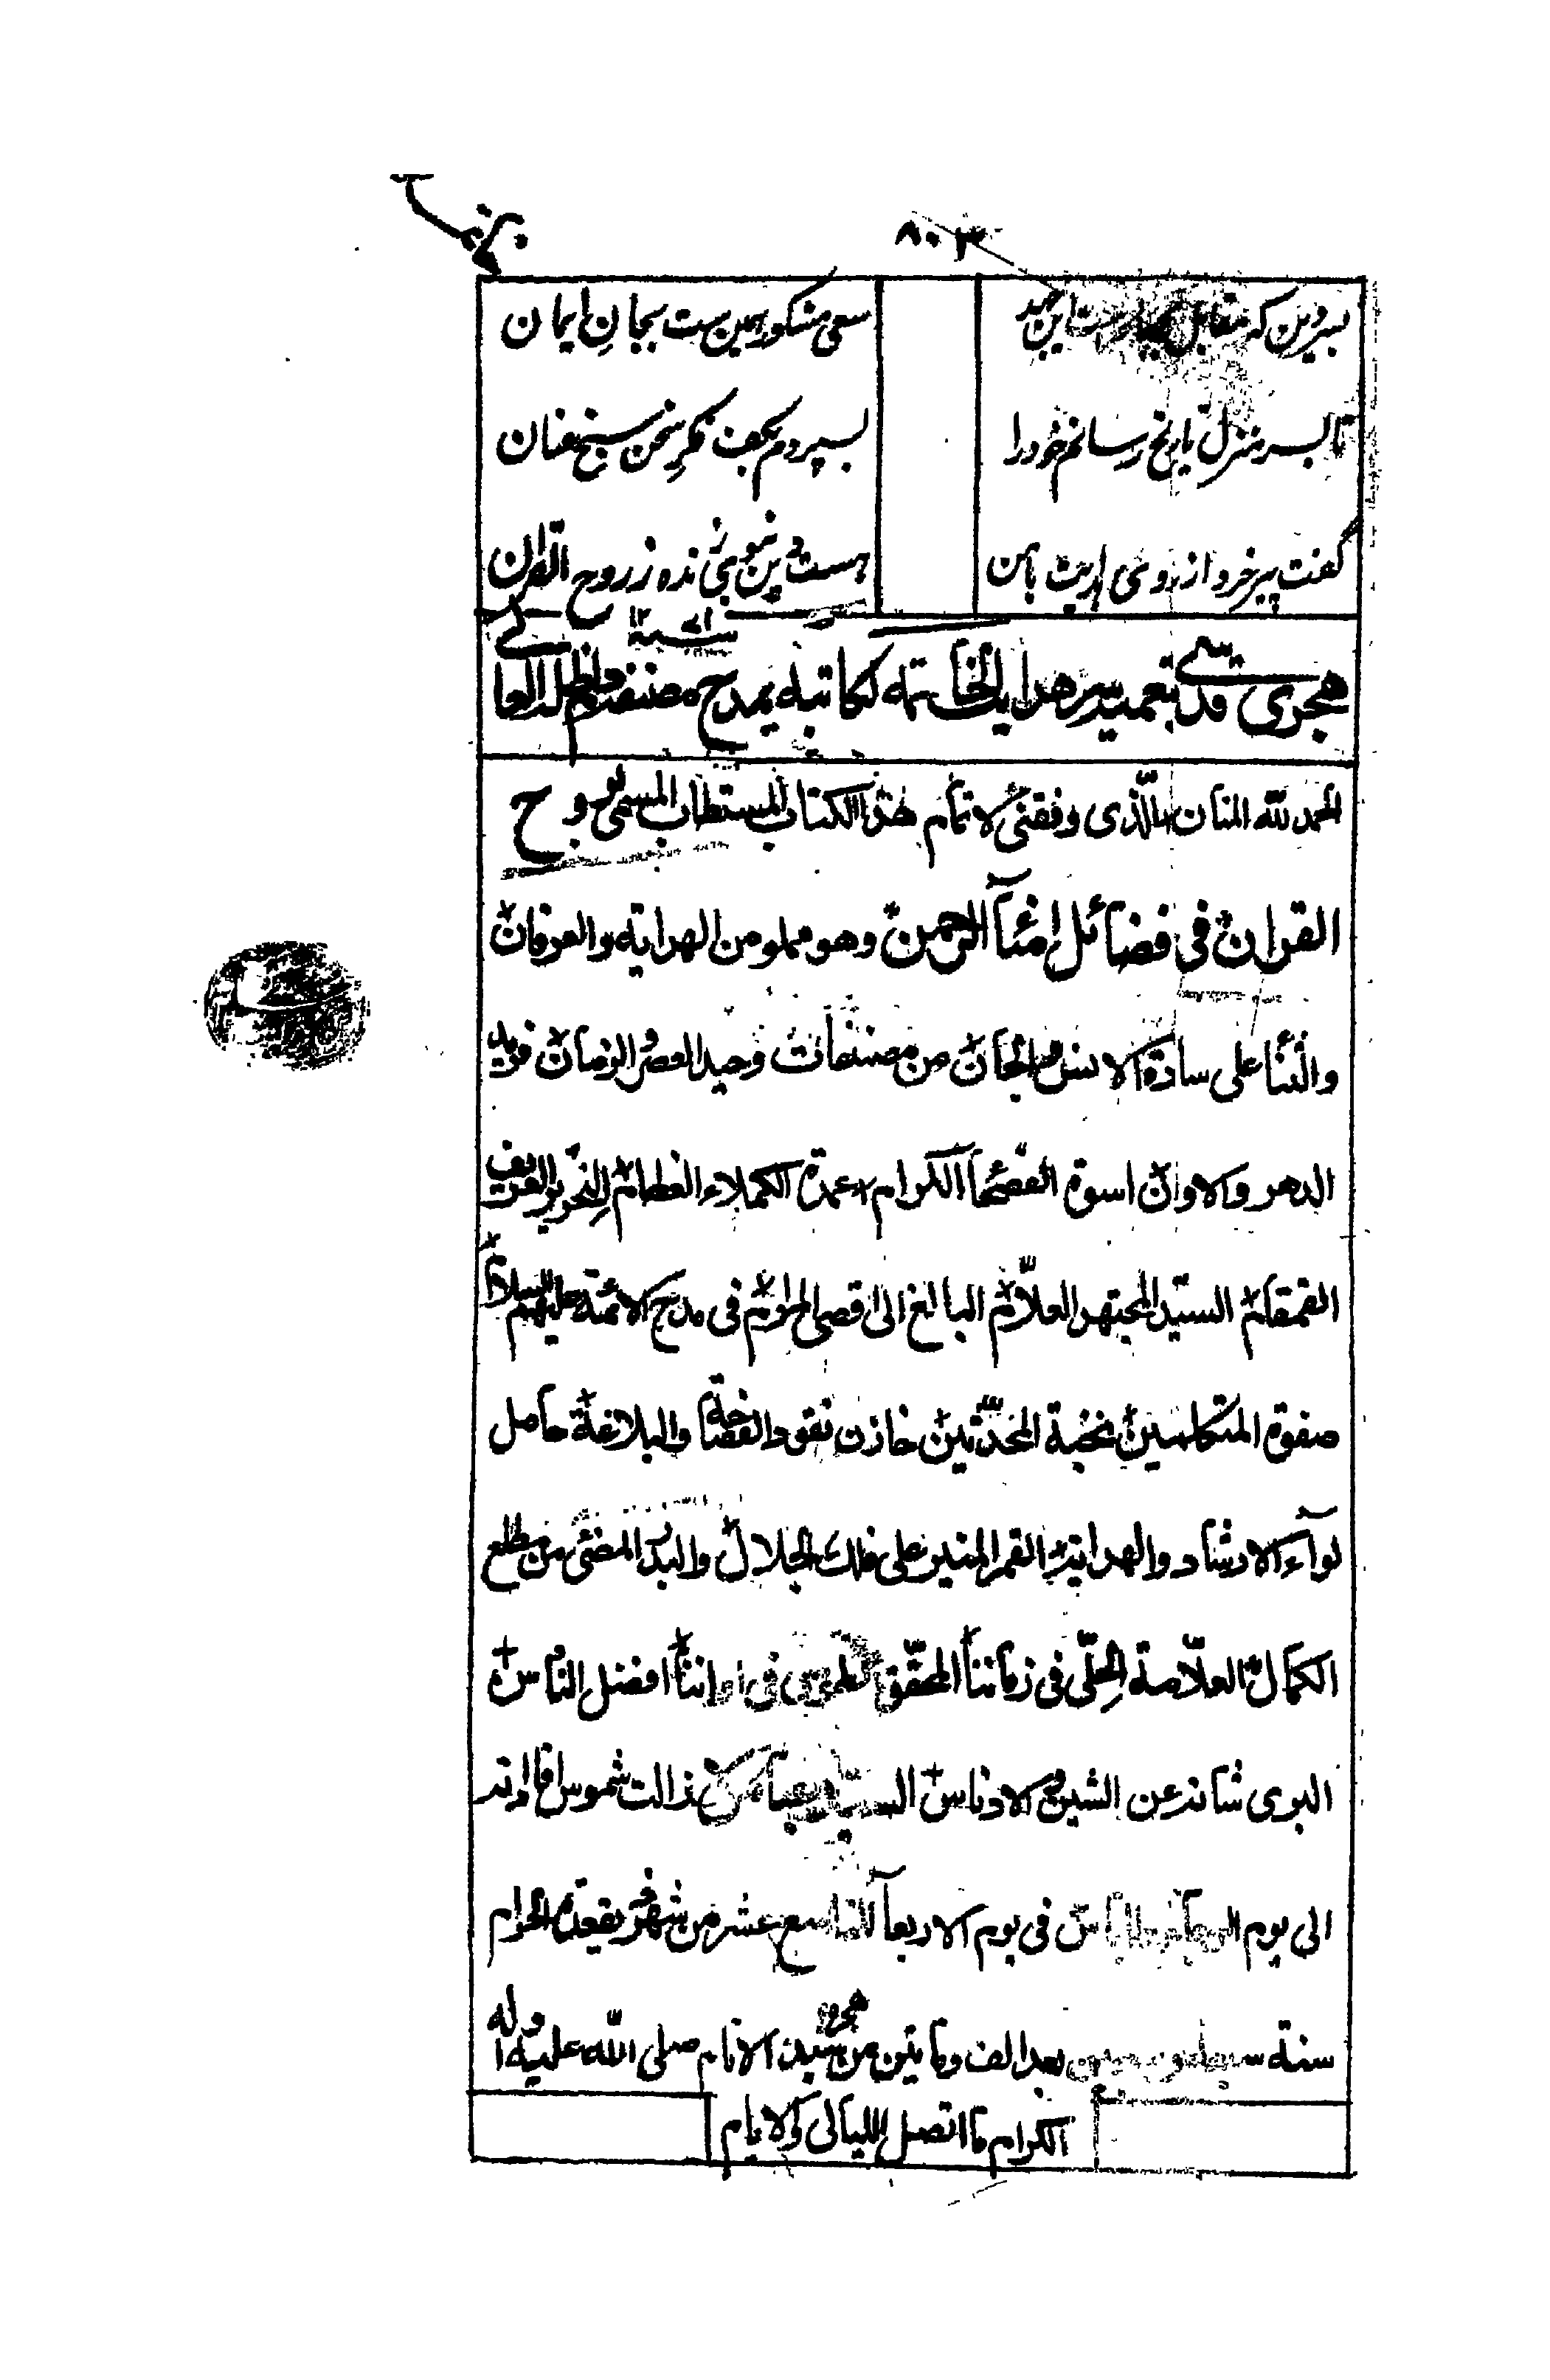 ۸۰۳
بسردین که مقابل این سعی مشکور همین ست بجانِ ایمان
تا بسر منزل تاریخ رسانم خود را بسپردم بکف فکرِ سخن سنج عنان
گفت پیر خرد از روی ادیت بامن هست دین نبوی زنده ز روح القران
سنة ۱۲
هجری قدسی تمت هذا الخاتمه لکاتبه یمدح مصنفه
الحمد لله المنان الّذی وفقنی لاتمام هذا الکتاب المستطاب المسمی بروح
القران فی فضائل امنآء الرحمن وهو مملو من الهدایة والعرفان
والثنا علی سادة الانس والجان من مصنفات وحید العصر والزمان فرید
الدهر والاوان اسوة الفصحآء الکرام عمدة الکملاء العظام النحریر الغریف
القمقام السیّد المجتهد العلّام البالغ الی اقصی المرام فی مدح الائمة علیهم السلام
صفوة المتکلمین نخبة المحدّثین خازن نقود الفصاحة والبلاغة حامل
لوآء الارشاد والهدایة القمر المنیر علی فلک الجلال والبدر المضئی من مطلع
الکمال العلّامة الحِلّی فی زماننا المحقّق الطوسی فی اواننا افضل الناس
البری شانه عن الشین والادناس السید عباس لازالت شموس افاداته
الی یوم فی یوم الاربعآء التاسع عشر من شهر ذیقعدة الحرام
سنة بعد الف ومایتین من هجرة سید الانام صلی الله علیه واله
الکرام ما اتصل اللیالی والایام